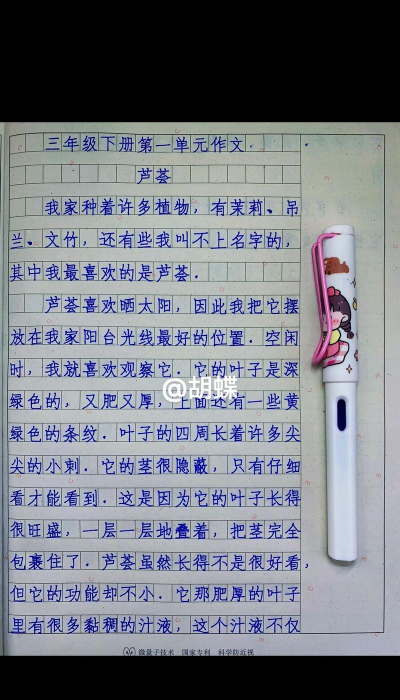 三年级下册第一单元作文.
芦荟
我家种着许多植物,有茉莉、吊
兰、文竹,还有些我叫不上名字的,
其中我最喜欢的是芦荟.
芦荟喜欢晒太阳,因此我把它摆
放在我家阳台光线最好的位置.空闲
时,我就喜欢观察它.它的叶子是深
@胡蝶
绿色的,又肥又厚,上面还有一些黄
绿色的条纹.叶子的四周长着许多尖
尖的小刺.它的茎很隐蔽,只有仔细
看才能看到.这是因为它的叶子长得
很旺盛,一层一层地叠着,把茎完全
包裹住了.芦荟虽然长得不是很好看,
但它的功能却不小.它那肥厚的叶子
里有很多黏稠的汁液,这个汁液不仅
微量子技术 国家专利 科学防近视